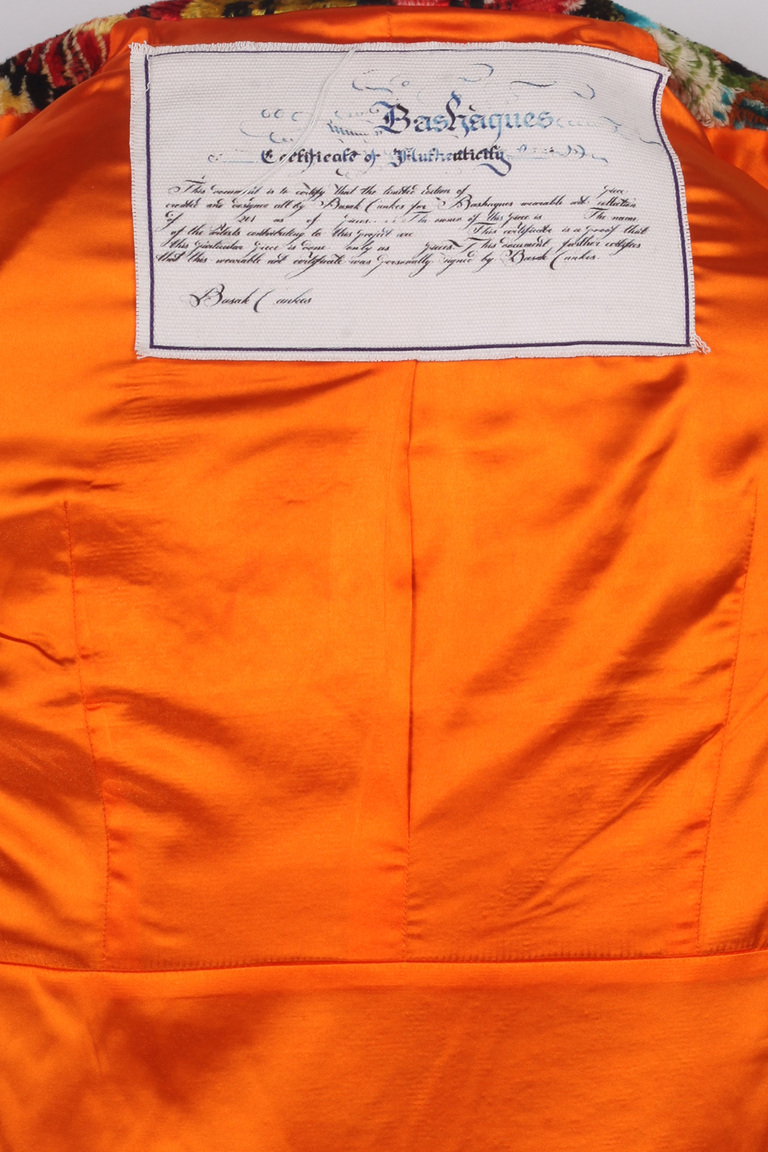 Bashaques
Certificate of Authenticity
This document is to certify that the limited edition of piece
created and designed all by Basak Cankes for Bashaques wearable art collection
of as of The name of this piece is The name
of the artists contributing to this project are This certificate is a proof that
this particular piece is done only as pieces. This document further certifies
that this wearable art certificate was personally signed by Basak Cankes.
Basak Cankes